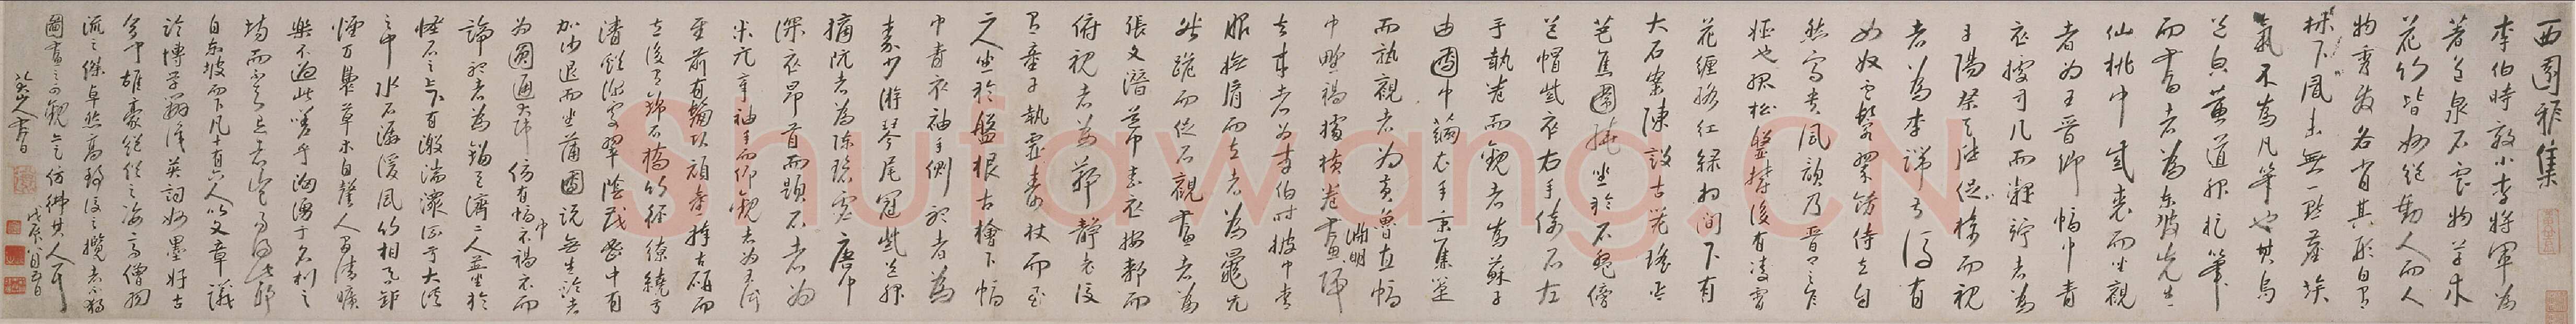 西園雅集
李伯時效小李將軍為
著色泉石雲物草木
花竹皆妙絕動人而人
物秀發各肖其形自有
林下風味無一點塵埃
氣不為凡筆也其烏
道服捉筆
而書者為東坡先生
仙桃巾紫裘而坐觀
者為王晉卿幅巾青
衣據方几而凝竚者為
丹陽蔡天啟捉椅而視
者為李端叔後有
女奴雲鬟翠飾侍立自
然富貴風韻乃晉卿之家
姬也孤松盤鬱後有凌霄
花纏絡紅綠相間下有
大石案陳設古器瑤琴
芭蕉圍繞坐於石盤傍
道帽紫衣右手倚石左
手執卷而觀者為蘇子
由團巾繭衣手秉蕉箑
而熟觀者為黃魯直幅
巾野褐據橫卷畫淵明歸
去來者為李伯時披巾青
服撫肩而立者為晁无
咎跪而捉石觀畫者為
張文潛道巾素衣按膝而
俯視者為鄭靜老後
有童子執靈壽杖而立
二人坐於盤根古檜下幅
巾青衣袖手側聽者為
秦少游琴尾冠紫道服
摘阮者為陳碧虛唐巾
深衣昂首而題石者為
米元章袖手而仰觀者為王仲
至前有鬅頭頑童捧古硯而
立後有錦石橋竹徑繚繞於
清谿深處翠陰茂密中有
袈裟坐蒲團說無生論者
為圓通大師傍有幅巾褐衣而
諦聽者為劉巨濟二人並坐於
怪石之上下有激湍潨流於大溪
之中水石潺湲風竹相吞爐
煙方裊草木自馨人間清曠
樂不過此嗟乎洶湧于名利之
場而不知退者豈易得此耶
自東坡而下凡十有六人以文章議
論博學辨識英詞妙墨好古
多聞雄豪絕俗之資高僧羽
流之傑卓然高致後之攬者不獨
圖畫之可觀亦足仿彿其人耳
八大山人書
Shufawang.CN